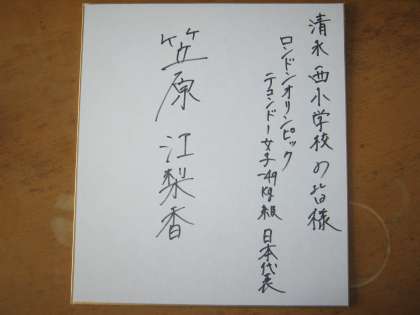 清水西小学校の皆様
ロンドンオリンピック
テコンドー女子-49kg級 日本代表
笠原江梨香